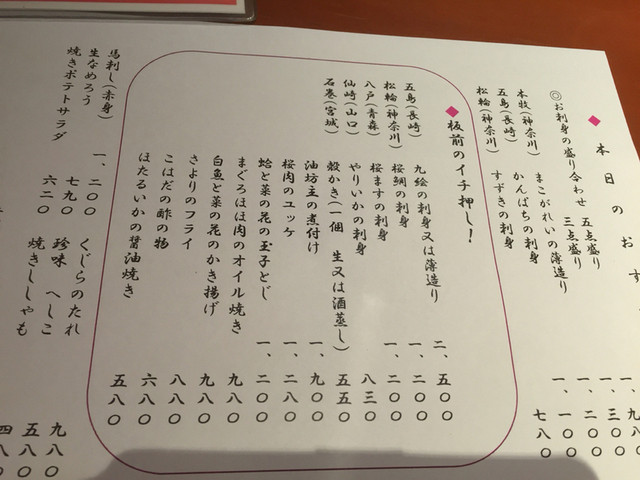 ◆本日のおす
◎お刺身の盛り合わせ 五点盛り 一、九八〇
三点盛り 一、三〇〇
本牧(神奈川) まこがれいの薄造り 一、二〇〇
五島(長崎) かんぱちの刺身 一、一〇〇
松輪(神奈川) すずきの刺身 七八〇
◆板前のイチ押し!
五島(長崎) 九絵の刺身又は薄造り 二、五〇〇
松輪(神奈川) 桜鯛の刺身 一、二〇〇
八戸(青森) 桜ますの刺身 一、二〇〇
仙崎(山口) やりいかの刺身 八三〇
石巻(宮城) 殻かき(一個 生又は酒蒸し) 五五〇
油坊主の煮付け 一、九〇〇
桜肉のユッケ 一、二八〇
蛤と菜の花の玉子とじ 一、二〇〇
まぐろほほ肉のオイル焼き 九八〇
白魚と菜の花のかき揚げ 九八〇
さよりのフライ 八八〇
こはだの酢の物 六八〇
ほたるいかの醤油焼き 五八〇
馬刺し(赤身) 一、二〇〇
生なめろう 七九〇
焼きポテトサラダ 六二〇
くじらのたれ 九八〇
珍味 へしこ 五八〇
焼きししゃも 四八〇